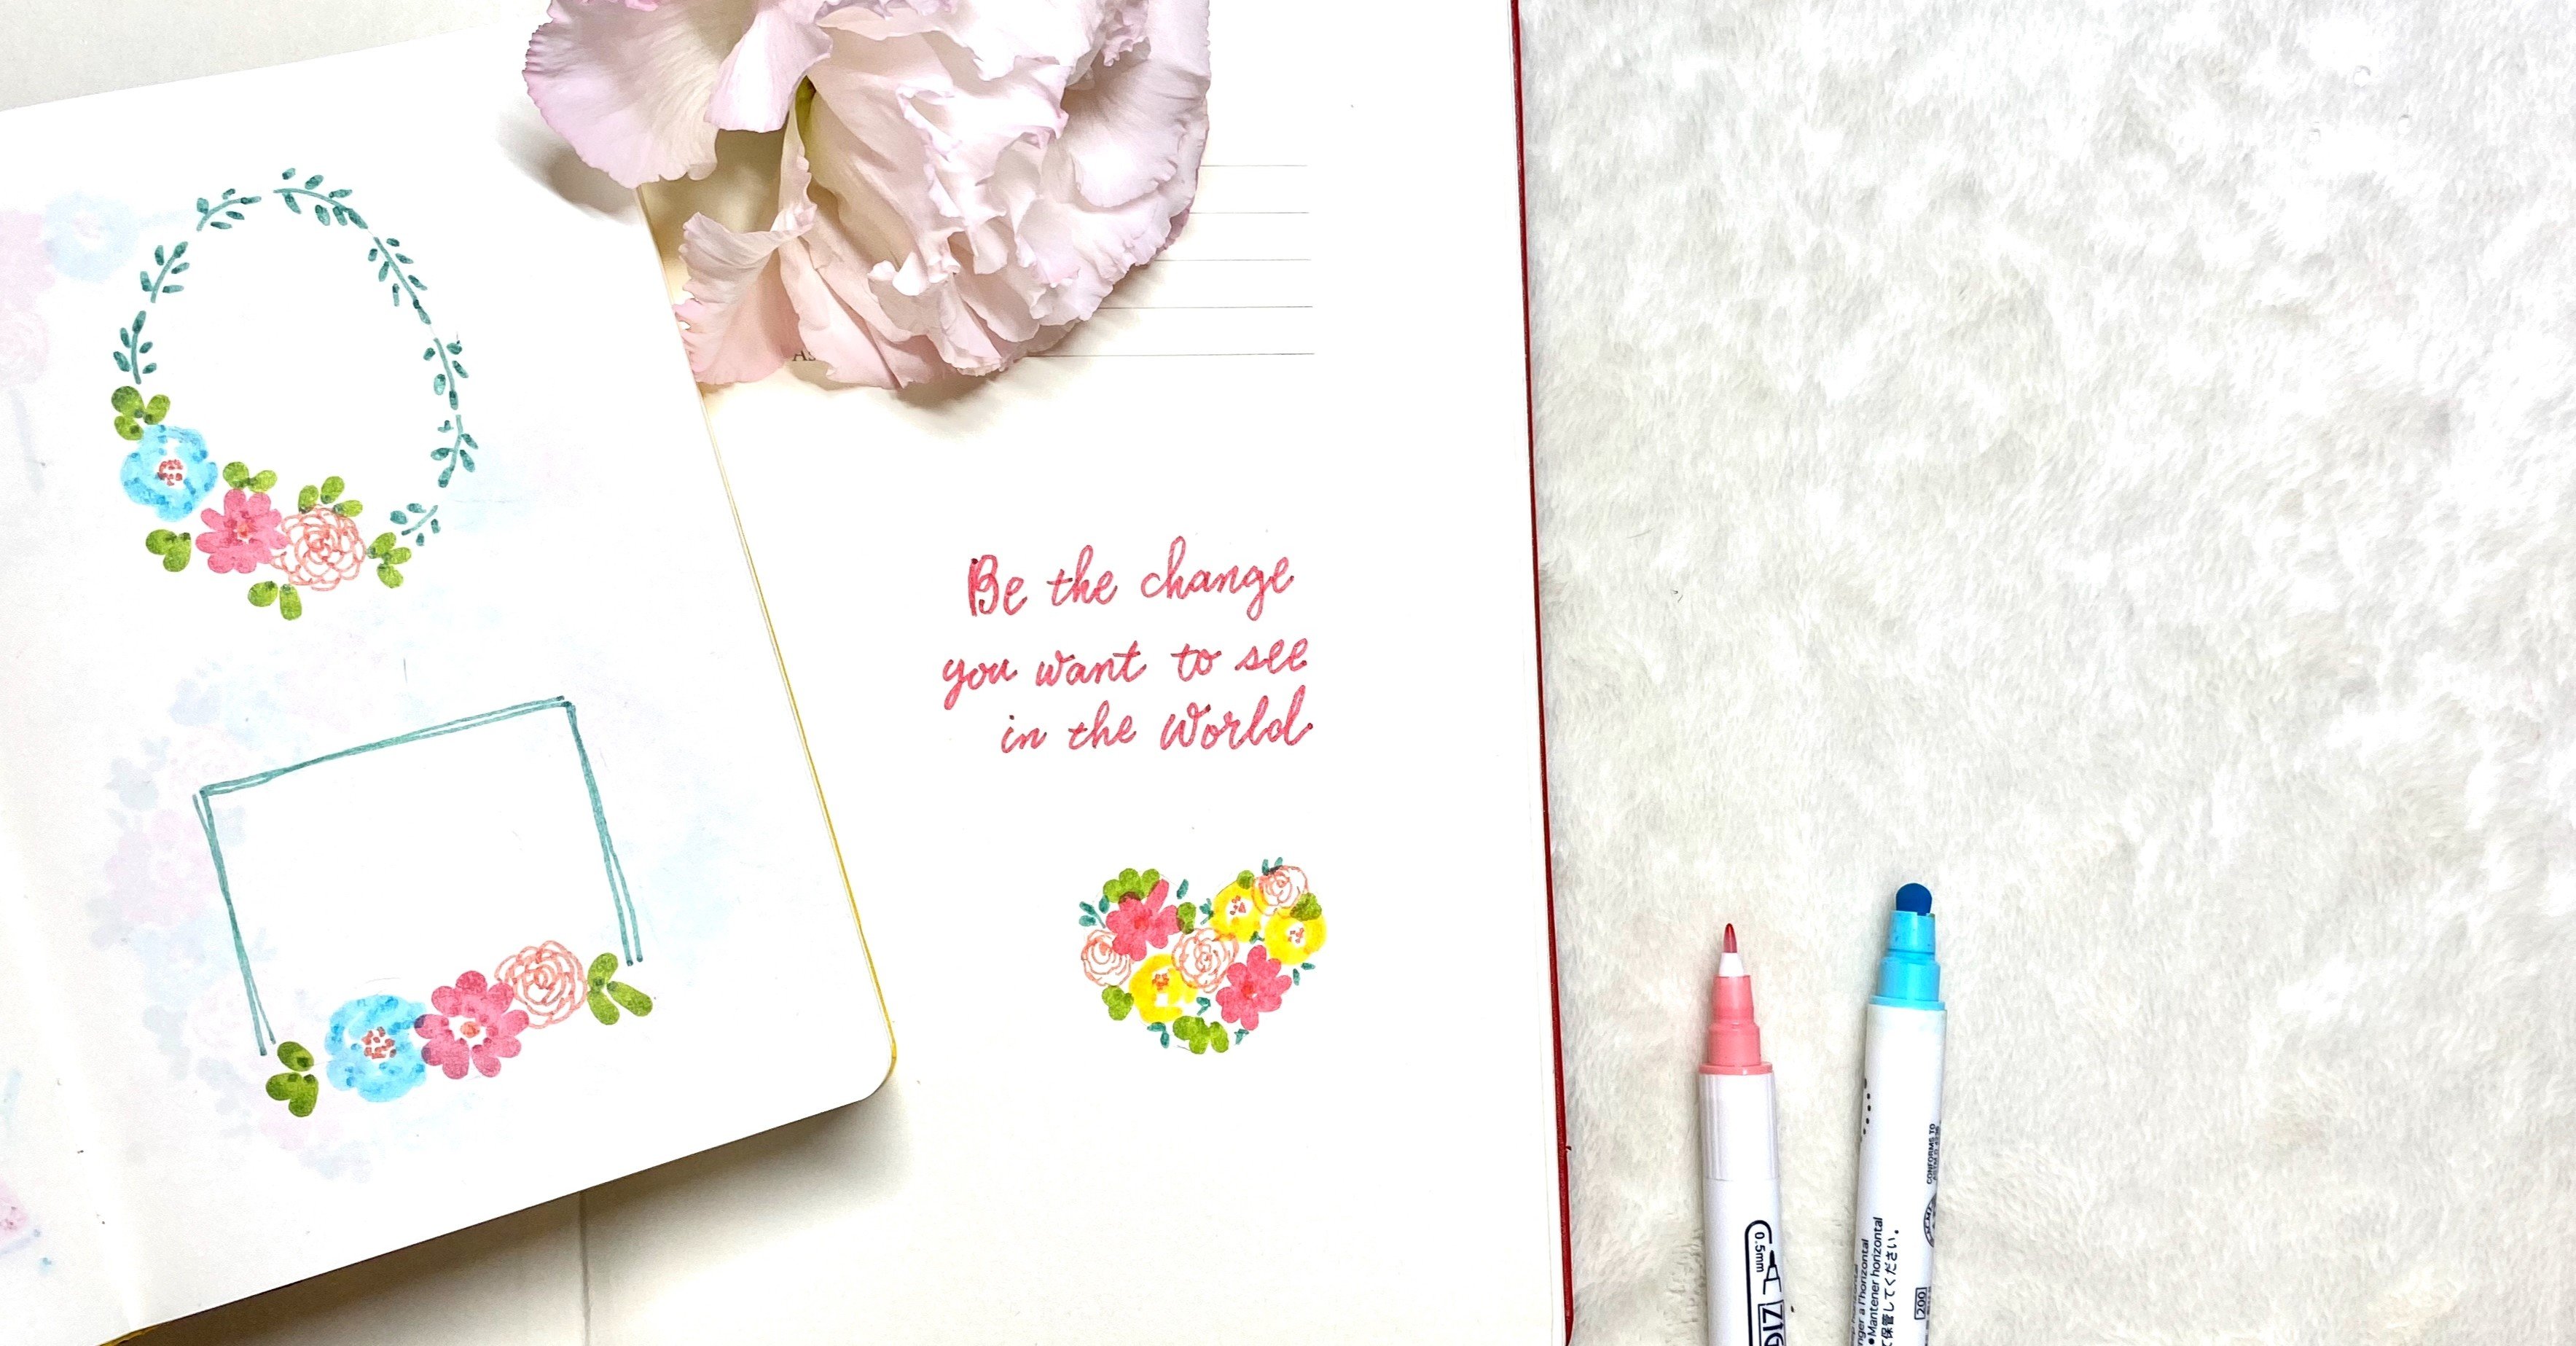 Be the change
you want to see
in the World
0.5mm
ZIG
CONFORMS TO
200
•Mantener horizontal
保管してください。